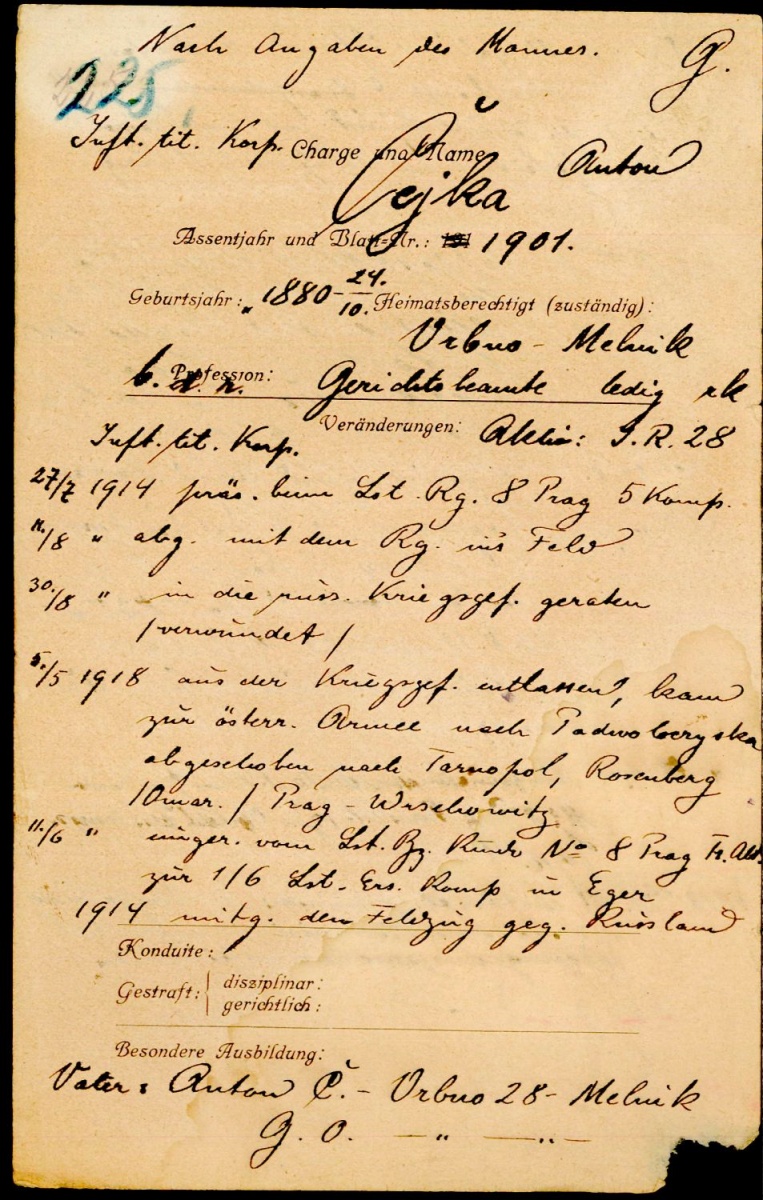 Nach Angaben des Mannes. G.
225
Inft. tit. Korp. Charge und Name Anton
Čejka
Assentjahr und Blatt-Nr.: 1901.
Geburtsjahr: 1880 24./10. Heimatsberechtigt (zuständig):
Vrbno - Melnik
Profession: Gerichtsbeamte ledig rk
Veränderungen: Aktiv: I.R. 28
Inft. tit. Korp.
27/7 1914 präs. beim Lst. Rg. 8 Prag 5 Komp.
11./8 " abg. mit dem Rg. ins Feld
30./8 " in die russ. Kriegsgef. geraten
/verwundet/
5./5 1918 aus der Kriegsgef. entlassen, kam
zur österr. Armee nach Padwoloczyska
abgeschoben nach Tarnopol, Rosenberg
/Omar./ Prag - Wrschowitz
11./6 " einger. vom Lst. Bz. Kmdo No 8 Prag
zur 1/6 Lst. Ers. Komp in Eger
1914 mitg. den Feldzug geg. Russland
Konduite:
Gestraft: disziplinar:
gerichtlich:
Besondere Ausbildung:
Vater: Anton Č. - Vrbno 28 - Melnik
G. O. — " — " —